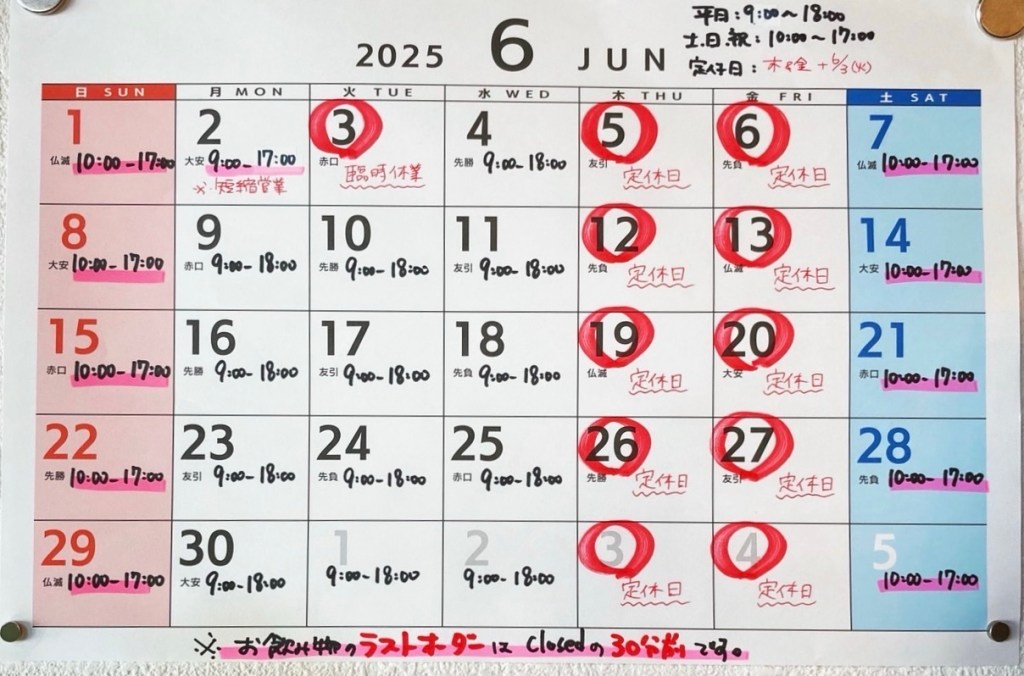 2025 6 JUN
平日:9:00～18:00
土.日.祝:10:00～17:00
定休日:木&金+6/3(火)
日 SUN 月 MON 火 TUE 水 WED 木 THU 金 FRI 土 SAT
1 2 3 4 5 6 7
仏滅 10:00-17:00 大安 9:00-17:00 赤口 先勝 9:00-18:00 友引 先負 仏滅 10:00-17:00
※短縮営業 臨時休業 定休日 定休日
8 9 10 11 12 13 14
大安 10:00-17:00 赤口 9:00-18:00 先勝 9:00-18:00 友引 9:00-18:00 先負 定休日 仏滅 定休日 大安 10:00-17:00
15 16 17 18 19 20 21
赤口 10:00-17:00 先勝 9:00-18:00 友引 9:00-18:00 先負 9:00-18:00 仏滅 定休日 大安 定休日 赤口 10:00-17:00
22 23 24 25 26 27 28
先勝 10:00-17:00 友引 9:00-18:00 先負 9:00-18:00 赤口 9:00-18:00 先勝 定休日 友引 定休日 先負 10:00-17:00
29 30 1 2 3 4 5
仏滅 10:00-17:00 大安 9:00-18:00 9:00-18:00 9:00-18:00 定休日 定休日 10:00-17:00
※お飲み物のラストオーダーはClosedの30分前です。